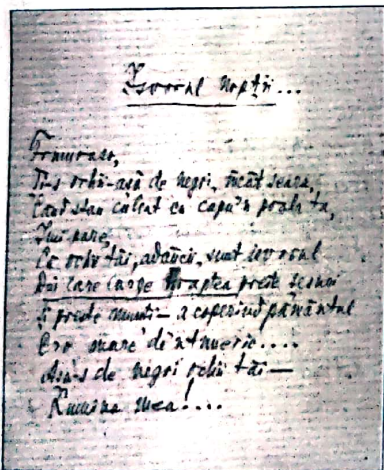 Isvorul nopții...
Frumoaso,
Ți-s ochii-așà de negri, încât seara,
Când stau culcat cu capu'n poala ta,
Îmi pare,
Că ochii tăi, adâncii, sunt isvorul
Din care curge noaptea peste șesuri
Și peste munți— acoperind pământul
C'o mare de'ntuneric....
Așa-s de negri ochii tăi—
Lumina mea!....